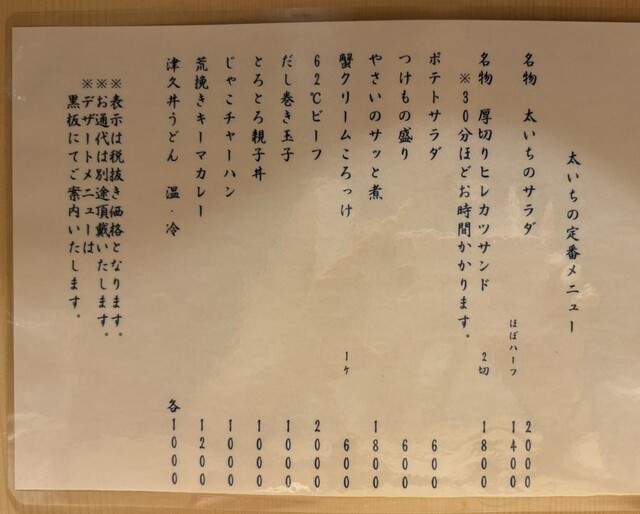 太いちの定番メニュー
名物 太いちのサラダ 2000
ほぼハーフ 1400
名物 厚切りヒレカツサンド 2切 1800
※30分ほどお時間かかります。
ポテトサラダ 600
つけもの盛り 600
やさいのサッと煮 1800
蟹クリームころっけ 1ヶ 600
62℃ビーフ 2000
だし巻き玉子 1000
とろとろ親子丼 1000
じゃこチャーハン 1000
荒挽きキーマカレー 1200
津久井うどん 温・冷 各1000
※表示は税抜き価格となります。
※お通代は別途頂戴いたします。
※デザートメニューは
黒板にてご案内いたします。